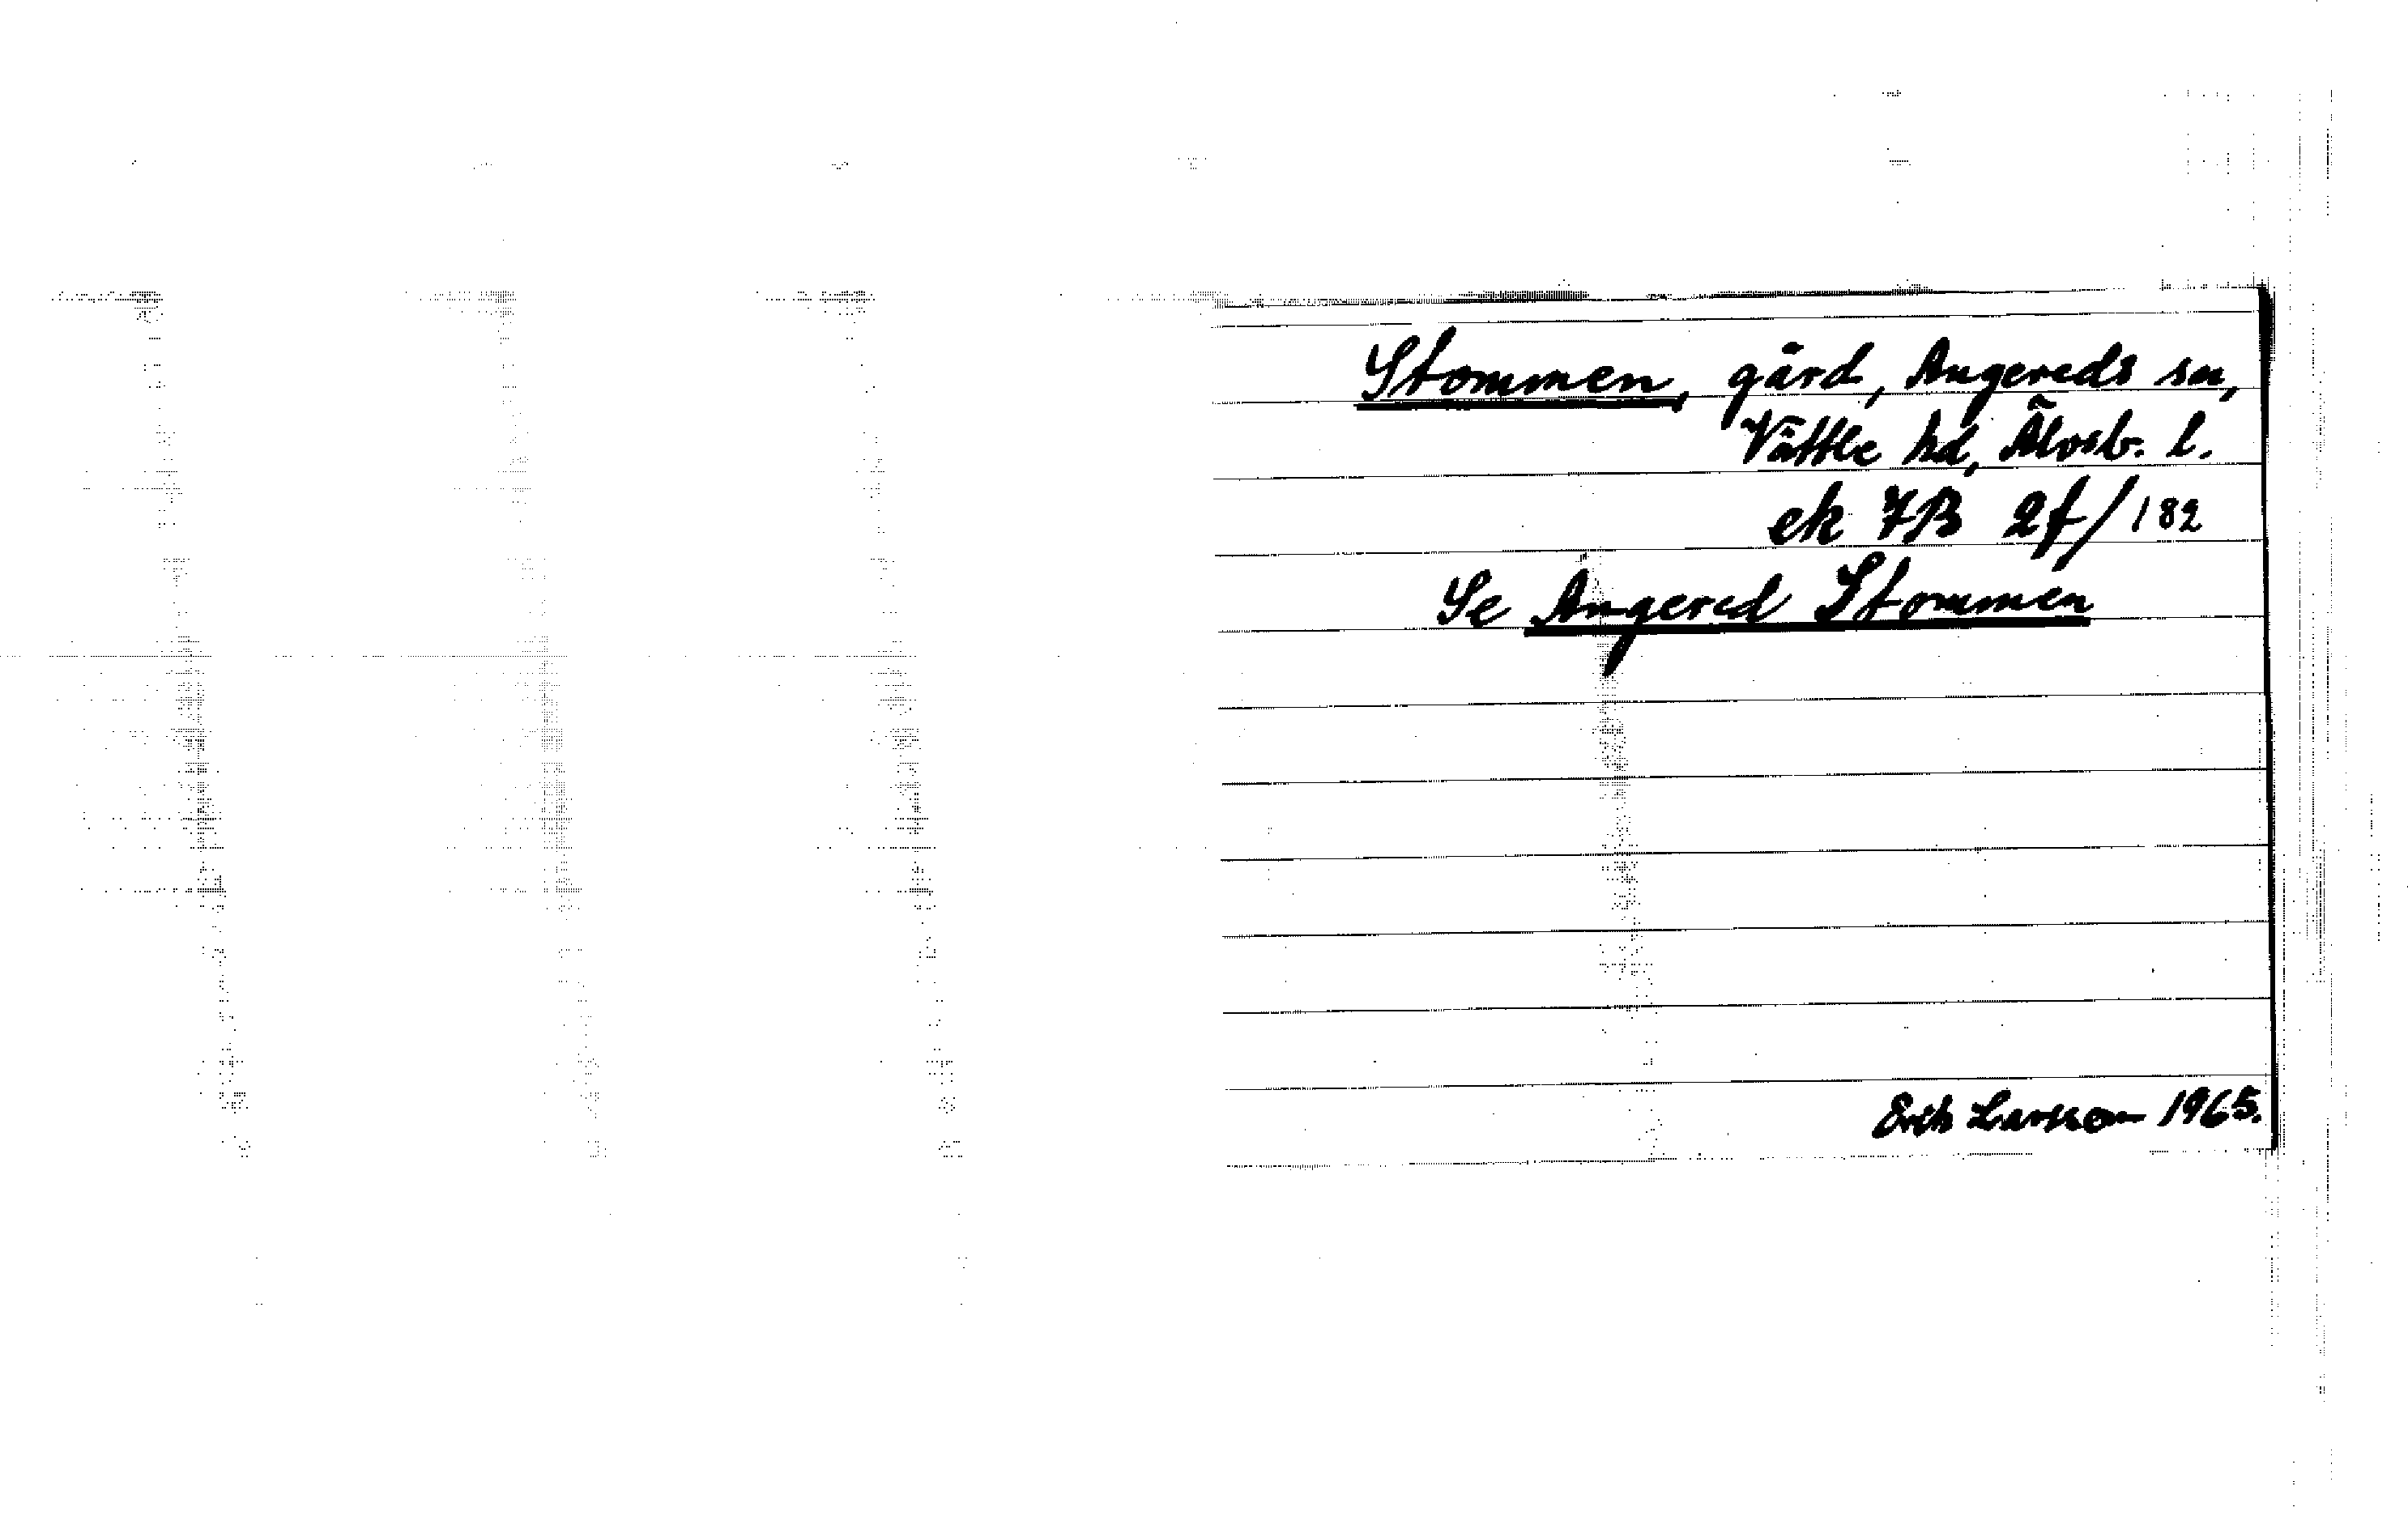 Stommen, gård, Angereds sn,
Vättle hd, Älvsb. l.
ek 7B 2f/182
Se Angered Stommen
Erik Larsson 1965.